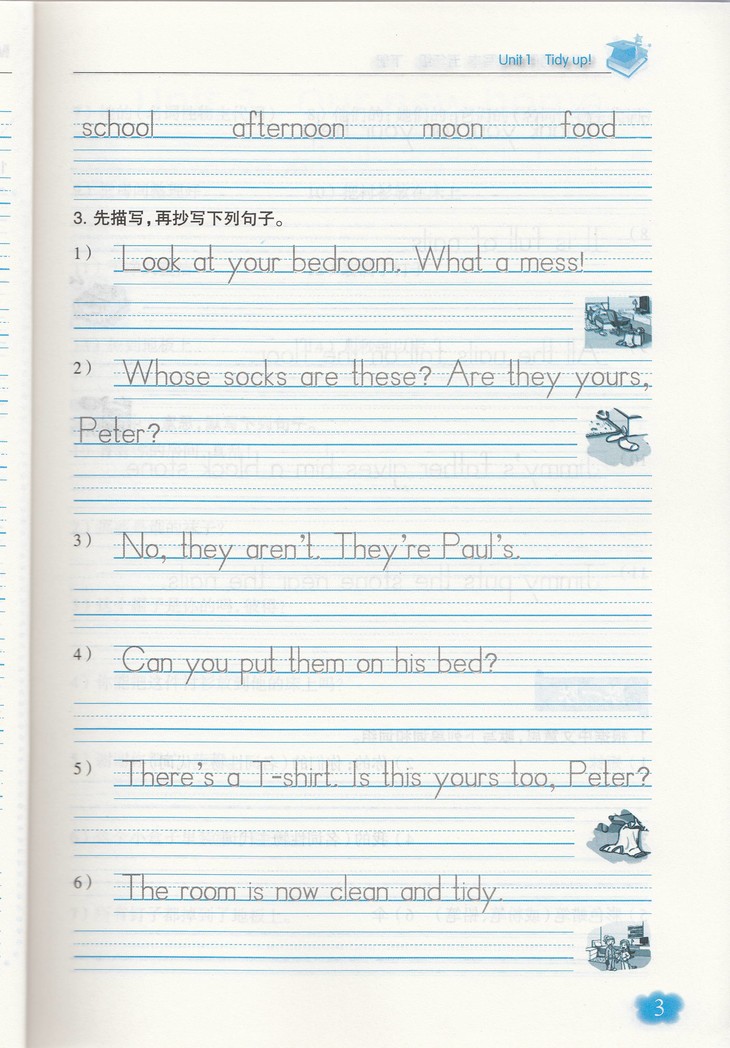 Unit 1 Tidy up!
school afternoon moon food
3. 先描写，再抄写下列句子。
1) Look at your bedroom. What a mess!
2) Whose socks are these? Are they yours,
Peter?
3) No, they aren't. They're Paul's.
4) Can you put them on his bed?
5) There's a T-shirt. Is this yours too, Peter?
6) The room is now clean and tidy.
3